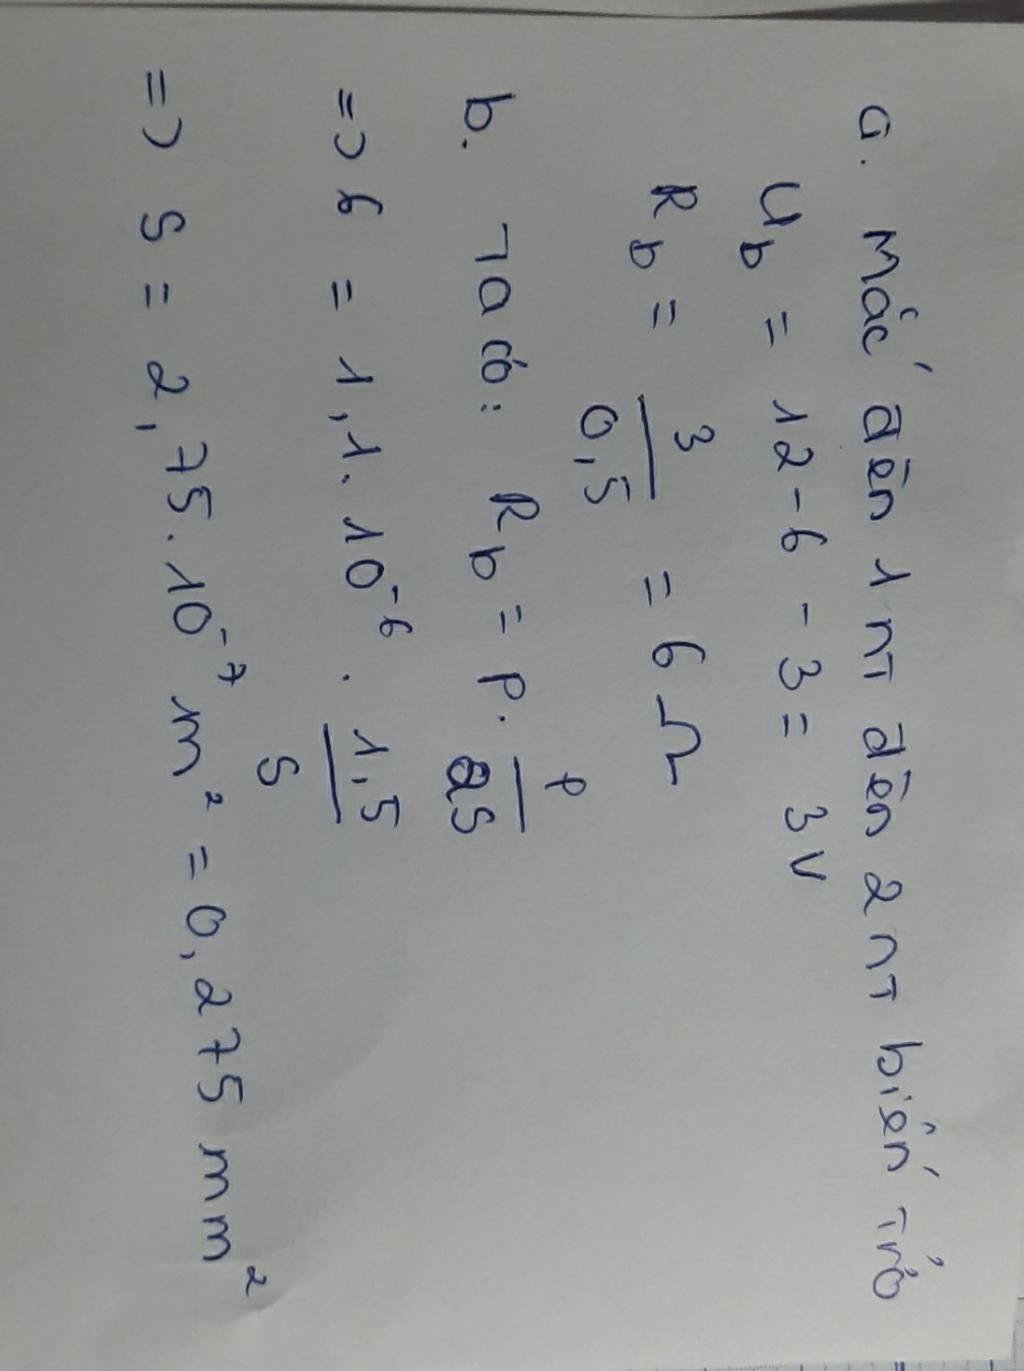 a. Mắc đèn 1 nT đèn 2 nT biến trở
U_b = 12 - 6 - 3 = 3V
R_b = 3/0,5 = 6 Ω
b. Ta có: R_b = ρ. l/S
=> 6 = 1,1. 10^-6 . 1,5/S
=> S = 2,75. 10^-7 m² = 0,275 mm²